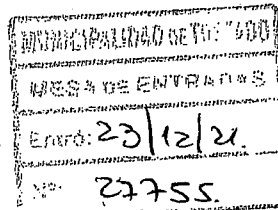 MUNICIPALIDAD DE
MESA DE ENTRADAS
Entró: 23/12/21.
Nº: 27755.